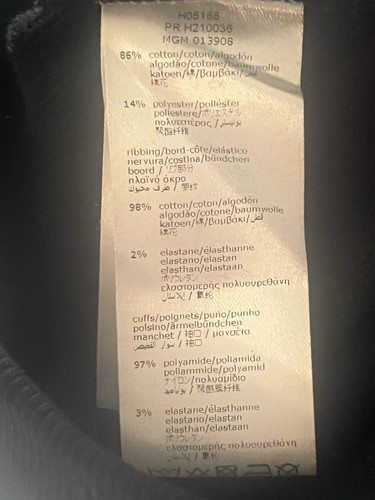 H05188
PR H210036
MGM 013908
86% cotton/coton/algodón
algodão/cotone/baumwolle
katoen/綿/βαμβάκι/قطن
棉花
14% polyester/poliéster
poliestere/ポリエステル
πολυεστέρας/بوليستر
聚酯纤维
ribbing/bord-côte/elástico
nervura/costina/bündchen
boord / リブ部分
πλαϊνό άκρο
98% cotton/coton/algodón
algodão/cotone/baumwolle
katoen/綿/βαμβάκι/قطن
棉花
2% elastane/élasthanne
elastano/elastan
elasthan/elastaan
ポリウレタン
ελαστομερής πολυουρεθάνη
cuffs/poignets/puño/punho
polsino/ärmelbündchen
manchet / 袖口 / μανσέτα
97% polyamide/poliamida
poliammide/polyamid
ナイロン/πολυαμίδιο
3% elastane/élasthanne
elastano/elastan
elasthan/elastaan
ポリウレタン
ελαστομερής πολυουρεθάνη